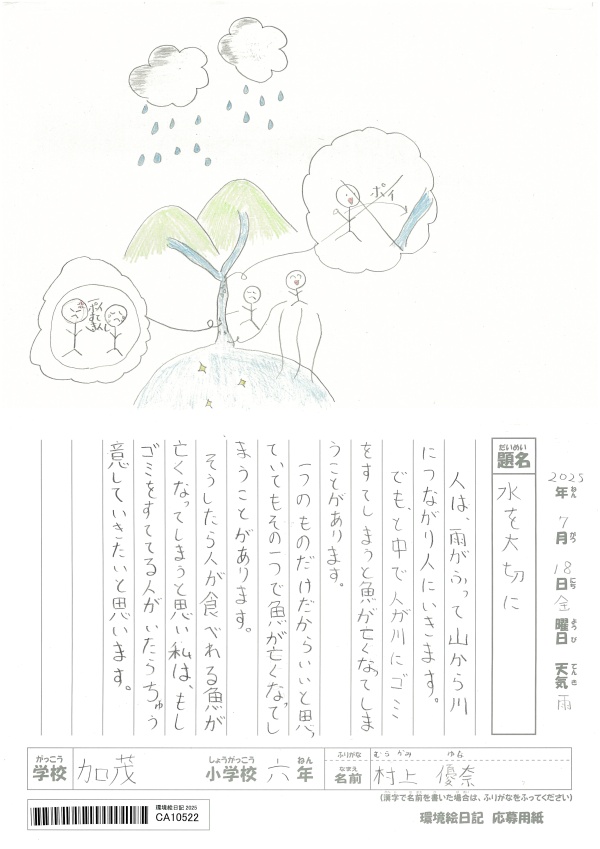 ポイ
ポイ
すて
きんし
2025年ねん 7月がつ 18日にち 金曜日ようび 天気てんき 雨
題名だいめい
水を大切に
人は、雨がふって山から川
につながり人にいきます。
でも、と中で人が川にゴミ
をすてしまうと魚が亡くなってしま
うことがあります。
一つのものだけだからいいと思っ
ていてもその一つで魚が亡くなってし
まうことがあります。
そうしたら人が食べれる魚が
亡くなってしまうと思い私は、もし
ゴミをすててる人がいたらちゅう
意していきたいと思います。
学校がっこう 加茂 小学校しょうがっこう 六年ねん
ふりがな むらかみ ゆな
名前なまえ 村上 優奈
(漢字で名前を書いた場合は、ふりがなをふってください)
環境絵日記 2025
CA10522
環境絵日記 応募用紙